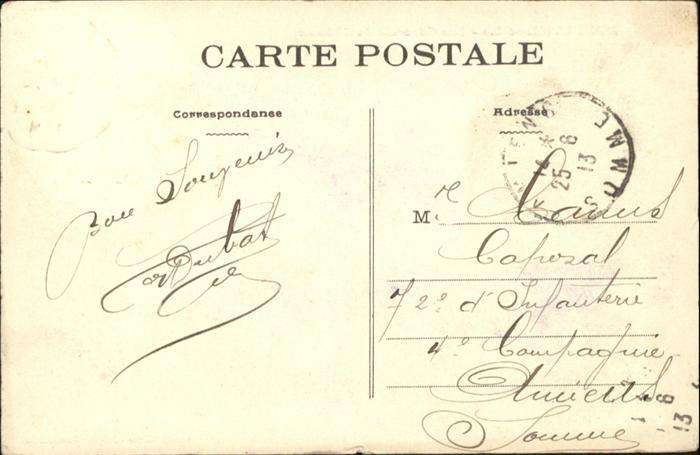 CARTE POSTALE
Correspondance
Adresse
Bon Souvenir
Dubat
M. r
Caporal
72e d'Infanterie
4e Compagnie
Amiens
Somme
SOMME
25 - 6
13
6
13